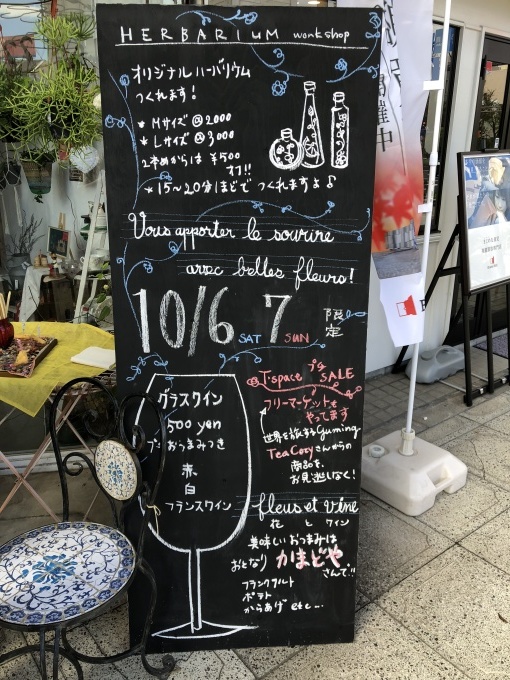 HERBARIUM workshop
オリジナルハーバリウム
つくれます!
* Mサイズ @2000
* Lサイズ @3000
2本めからは ¥500
オフ!!
* 15〜20分ほどで つくれますよ♪
Vous apporter le sourire
avec belles fleurs!
10/6 SAT 7 SUN 限定
T-space プチ SALE
フリーマーケットも
やってます
世界を旅するyuming
TeaCozyさんからの
商品を、
お見逃しなく!
グラスワイン
500 yen
プチおつまみつき
赤
白
フランスワイン
fleurs et vine
花 と ワイン
美味しいおつまみは
おとなり かまどや
さんで!!
フランクフルト
ポテト
からあげ etc...
開催中